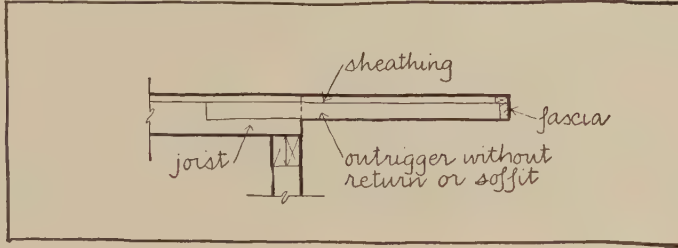 sheathing
fascia
joist
outrigger without
return or soffit